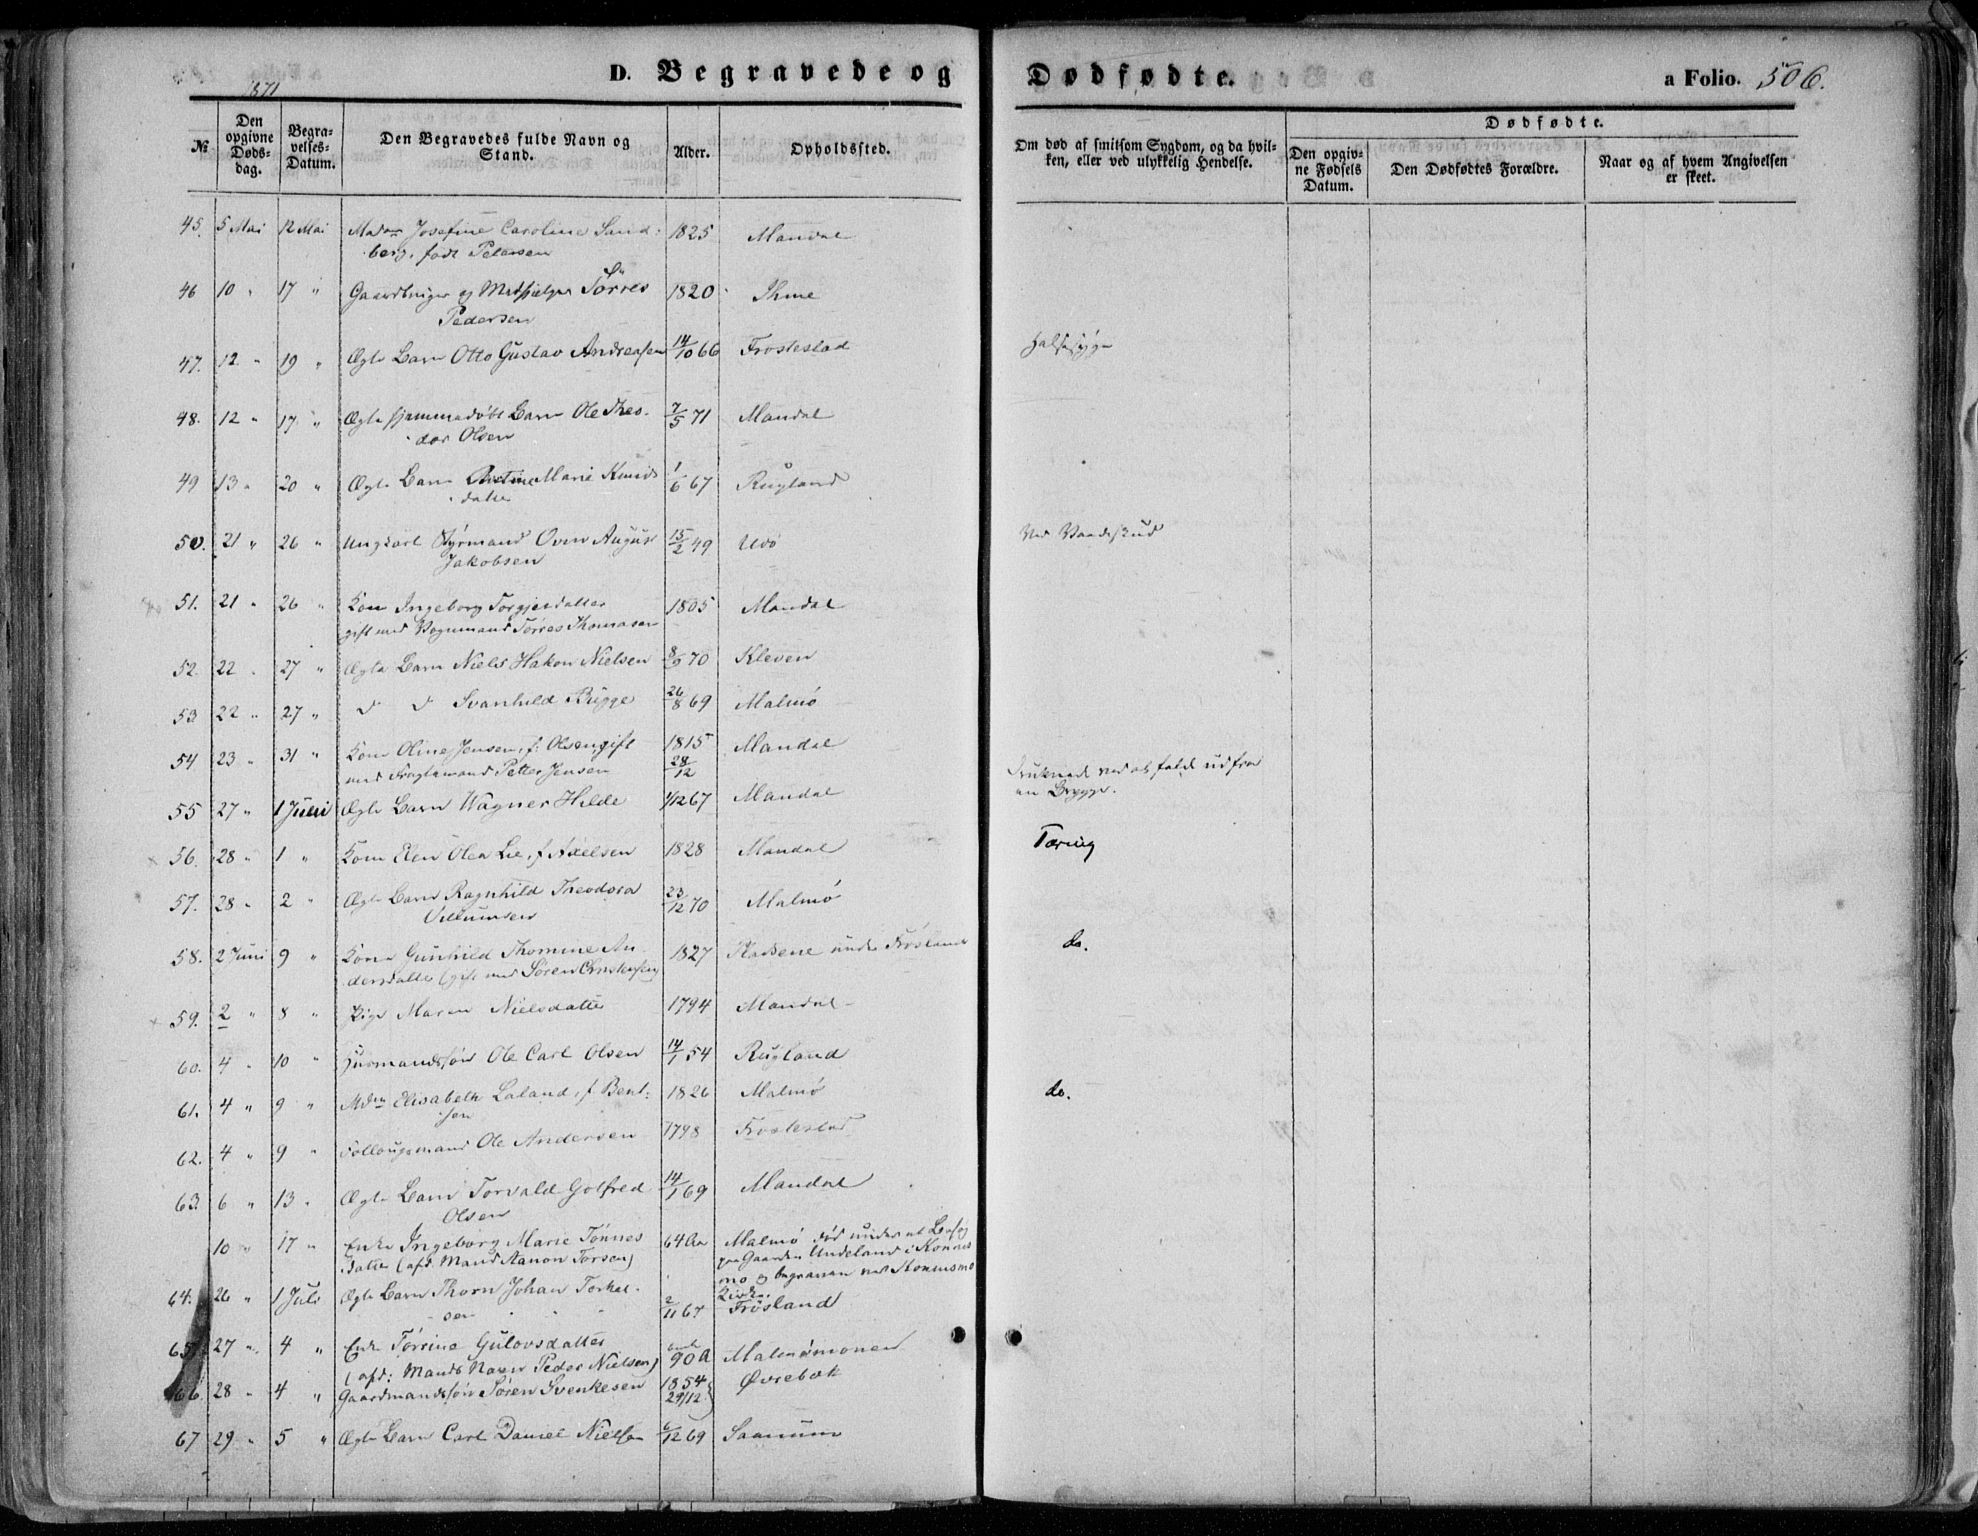 D. Begravede og Dødfødte. a Folio. 506.
1871
№ Den opgivne Døds-dag. Begra-velses-Datum. Den Begravedes fulde Navn og Stand. Alder. Opholdssted. Om død af smitsom Sygdom, og da hvil-ken, eller ved ulykkelig Hendelse. Dødfødte.
Den opgiv-ne Fødsels Datum. Den Dødfødtes Forældre. Naar og af hvem Angivelsen er skeet.
45. 5 Mai 12 Mai Madm Josefine Caroline Sand- 1825 Mandal
berg, født Petersen
46 10 " 17 " Gaardbruger og Medhjelper Törres 1820 Ihme
Pedersen
47. 12 " 19 " Ægte Barn Otto Gustav Andreasen 14/10 66 Frostestad Halssyge
48. 12 " 17 " Ægte hjemmedøbt Barn Ole Theo- 7/5 71 Mandal
dor Olsen
49 13 " 20 " Ægte Barn Marie Knuds 1/6 67 Rugland
datter
50. 21 " 26 " Ungkarl Styrmand Oven August 15/2 49 Uvö Ved Vaadeskud
Jakobsen
51. 21 " 26 " Kone Ingeborg Torgjersdatter 1805 Mandal
gift med Vognmand Törres Thomasen
52. 22 " 27 " Ægte Barn Niels Hakon Nielsen 8/9 70 Kleven
53 22 " 27 " d d Svanhild Brigge 26/8 69 Malmø
54 23 " 31 " Kone Oline Jensen, f. Olsen, gift 1815 Mandal
med Fragtemand Petter Jensen 28/12
55 27 " 1 Juni Ægte Barn Wagner Hilde 1/12 67 Mandal Druknede ved at falde ud fra
en Brygge.
56. 28 " 1 " Kone Elen Olea Lie, f. Axelsen 1828 Mandal Tæring
57. 28 " 2 " Ægte Barn Ragnhild Theodora 23/12 70 Malmø
Villumsen
58. 2 Juni 9 " Kone Gunhild Thomine An- 1827 under Frösland do.
dersdatter (gift med Sören Christensen)
59. 2 " 8 " Pige Maren Nielsdatter 1794 Mandal
60. 4 " 10 " Husmandssøn Ole Carl Olsen 14/1 54 Rugland
61. 4 " 9 " Mdm Elisabeth Laland, f. Bent- 1826 Malmø do.
sen
62. 4 " 9 " Follougsmand Ole Andersen 1798 Frostestad
63. 6 " 13 " Ægte Barn Torvald Gotfred 14/1 69 Mandal
Olsen
10 " 17 " Enke Ingeborg Marie Tønnes 64 Aar Malmø død under et Besøg
datter (afd. Mand Aanon Torsen) paa Gaarden Undeland i Konnes
mo og begraven ved Konnesmo
Kirke.
64. 26 " 1 Juli Ægte Barn Thorn Johan Torkel- 2/11 67 Frösland
sen
65. 27 " 4 " Enke Törrine Gulovsdatter 90 A Malmømonen
(afd: Mands Navn Peder Nielsen)
66. 28 " 4 " Gaardmandssøn Søren Svenkesen 1854 29/12 Øvrebøk
67 29 " 5 " Ægte Barn Carl Daniel Nielsen 6/12 69 Saanum